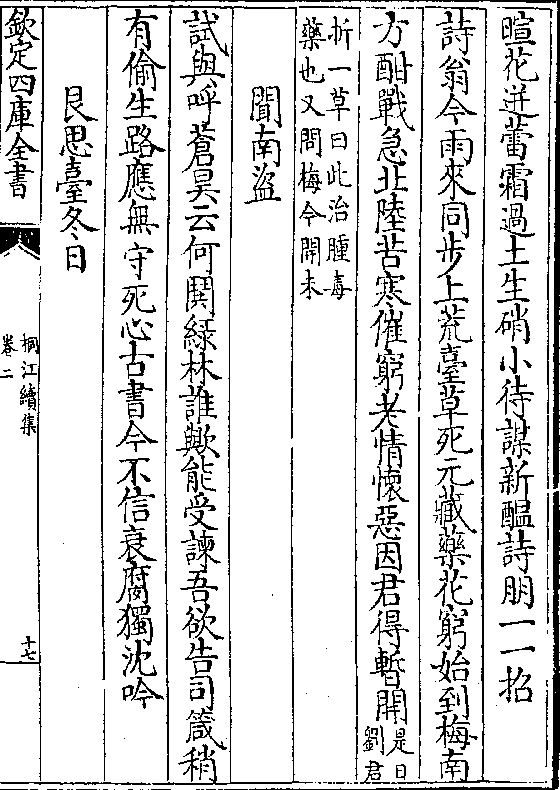 暄花迸蕾霜過土生硝小待謀新醖詩朋一一招
詩翁今雨來同步上荒臺草死元藏藥花窮始到梅南
方酣戰急北陸苦寒催窮老情懷惡因君得暫開是日劉君
折一草曰此治腫毒
藥也又問梅今開未
聞南盜
試與呼蒼昊云何鬨綠林誰歟能受諫吾欲告司箴稍
有偷生路應無守死心古書今不信衰腐獨沈吟
艮思臺冬日
欽定四庫全書
桐江續集
卷二
十七